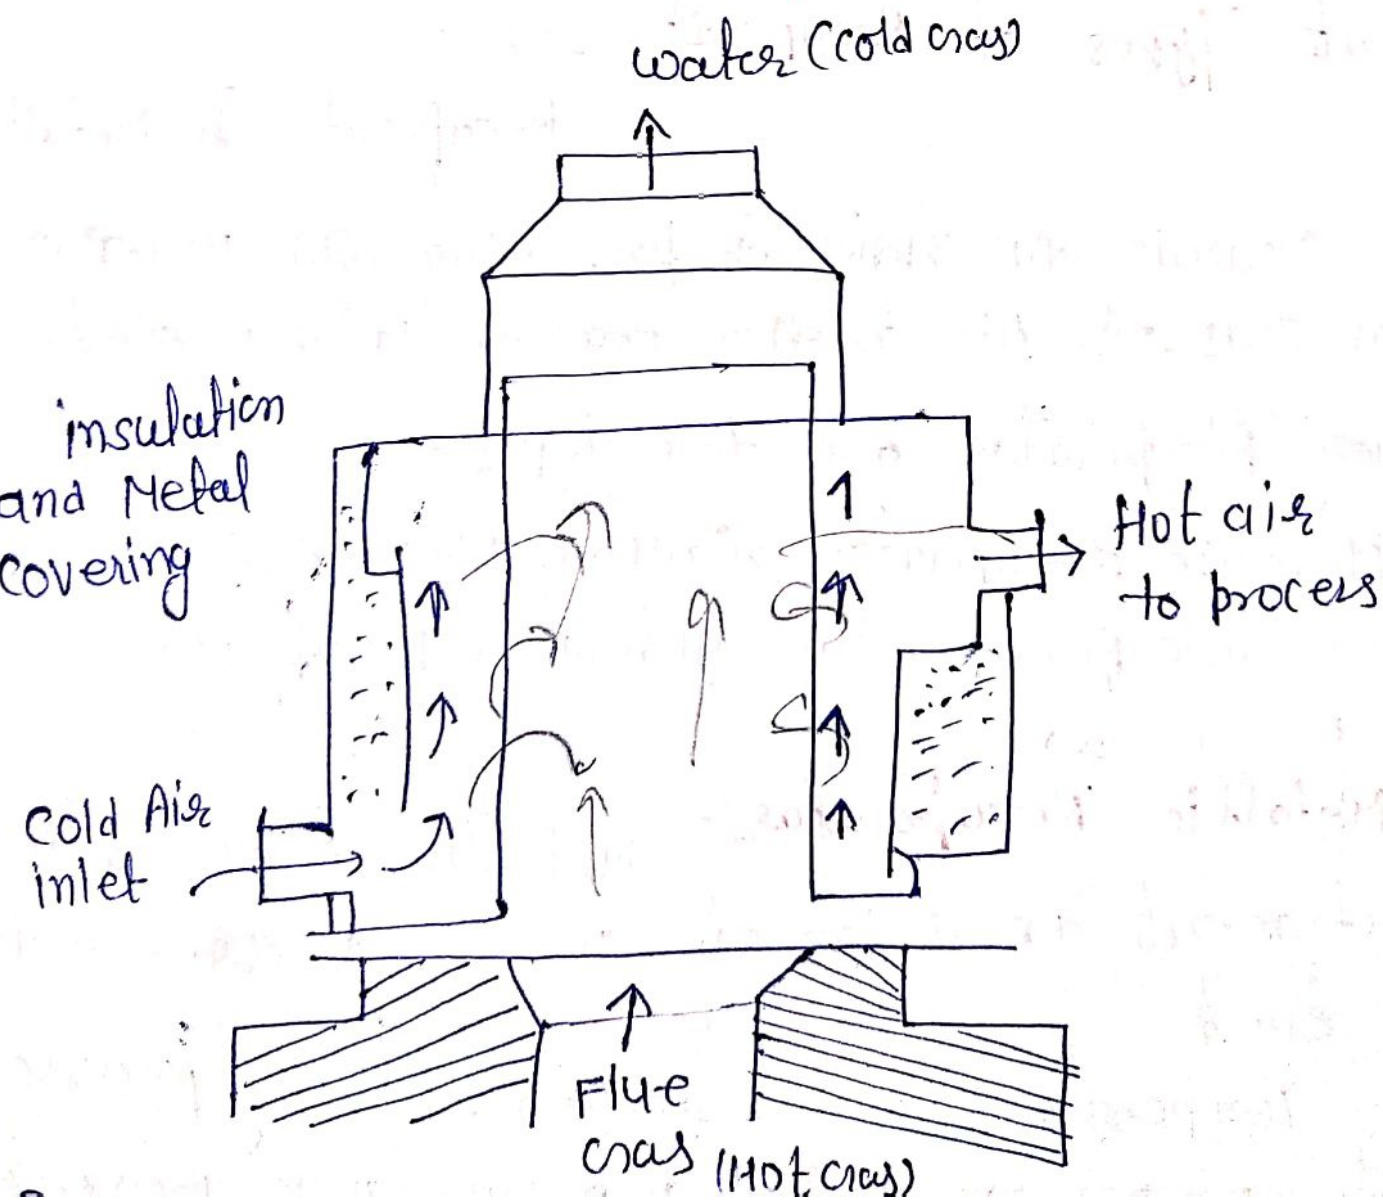 water (cold Gas)
insulation
and Metal
covering
Hot air
to process
Cold Air
inlet
Flue
Gas (Hot Gas)